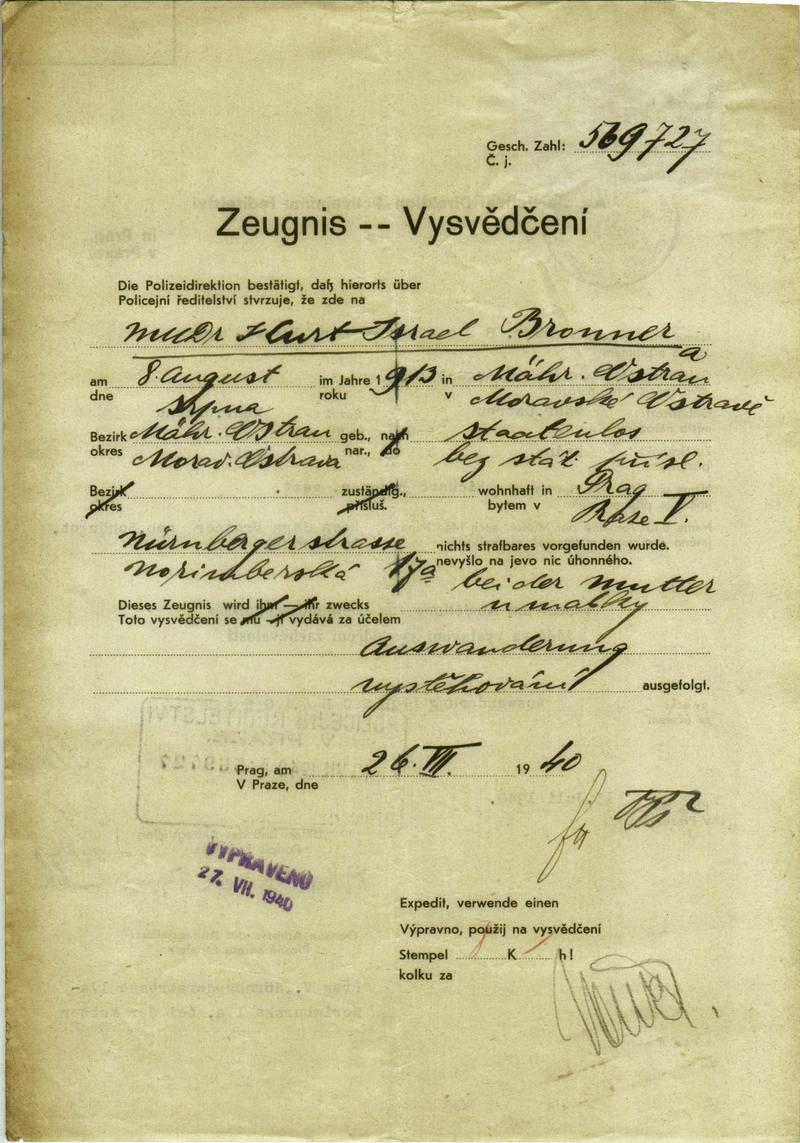 Gesch. Zahl: 569727
Č. j.
Zeugnis -- Vysvědčení
Die Polizeidirektion bestätigt, daß hierorts über
Policejní ředitelství stvrzuje, že zde na
MUDr Kurt Israel Bronner
am 8. August im Jahre 1913 in Mähr. Ostrau
dne srpna roku v Moravské Ostravě
Bezirk Mähr. Ostrau geb., nach staatenlos
okres Morav. Ostrava nar., do bez stát. přísl.
Bezirk zuständig., wohnhaft in Prag
okres přísluš. bytem v Praze V.
Nürnbergerstrasse nichts strafbares vorgefunden wurde.
Norimberská 17a nevyšlo na jevo nic úhonného.
bei der Mutter
Dieses Zeugnis wird ihm — ihr zwecks u matky
Toto vysvědčení se mu — jí vydává za účelem
Auswanderung
vystěhování ausgefolgt.
Prag, am 26. VII. 1940
V Praze, dne
VYPRAVENO
27. VII. 1940
Expedit, verwende einen
Výpravno, použij na vysvědčení
Stempel K h!
kolku za